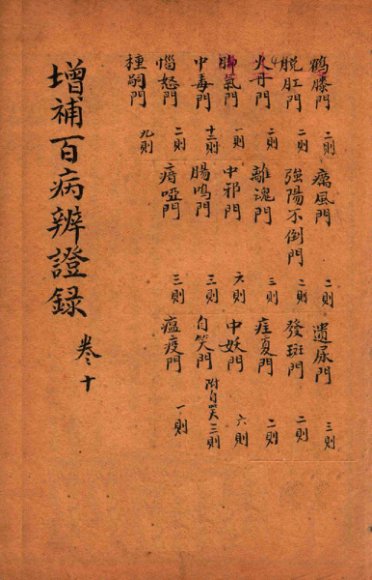 鶴膝門 二則 癘風門 二則 遺尿門 三則
脱肛門 二則 強陽不倒門 二則 發斑門 二則
火丹門 二則 離魂門 三則 疰夏門 二則
脚氣門 一則 中邪門 六則 中妖門 六則
中毒門 十二則 腸鳴門 三則 自笑門 附自哭 三則
惱怒門 二則 瘖啞門 三則 瘟疫門 一則
種嗣門 九則
增補百病辨證録 卷十